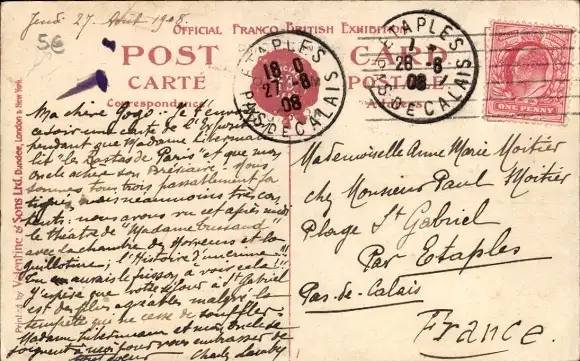 Jeudi 27 Août 1908.
5€
OFFICIAL FRANCO-BRITISH EXHIBITION
POST CARD
CARTE POSTALE
Correspondence
Address
ETAPLES
18 0
27 - 8
08
PAS DE CALAIS
ETAPLES
26 8
08
PAS DE CALAIS
ONE PENNY
Printed by Valentine & Sons Ltd. Dundee, London & New York.
Ma chère Gogo. Je t'envoie
ce soir une carte de l'
pendant que Madame
lit "le de Paris" et que mon
oncle achève son Bréviaire. Nous
sommes tous trois passablement fa
tigués mais néanmoins très con
tents: nous avons vu cet après midi
le théâtre de "Madame Tussaud"
avec la chambre des Horreurs et la
Guillotine; l'Histoire d'un crime!!!
Tu en aurais le frisson à voir cela!!
J'espère que votre séjour à St Gabriel
est des plus agréables malgré la
tempête qui ne cesse de souffler.
Madame et mon oncle se
joignent à moi pour vous embrasser de
tout coeur. Charles
Mademoiselle Anne Marie Moitier
chez Monsieur Paul Moitier
Plage St Gabriel
Par Etaples
Pas-de-Calais
France.